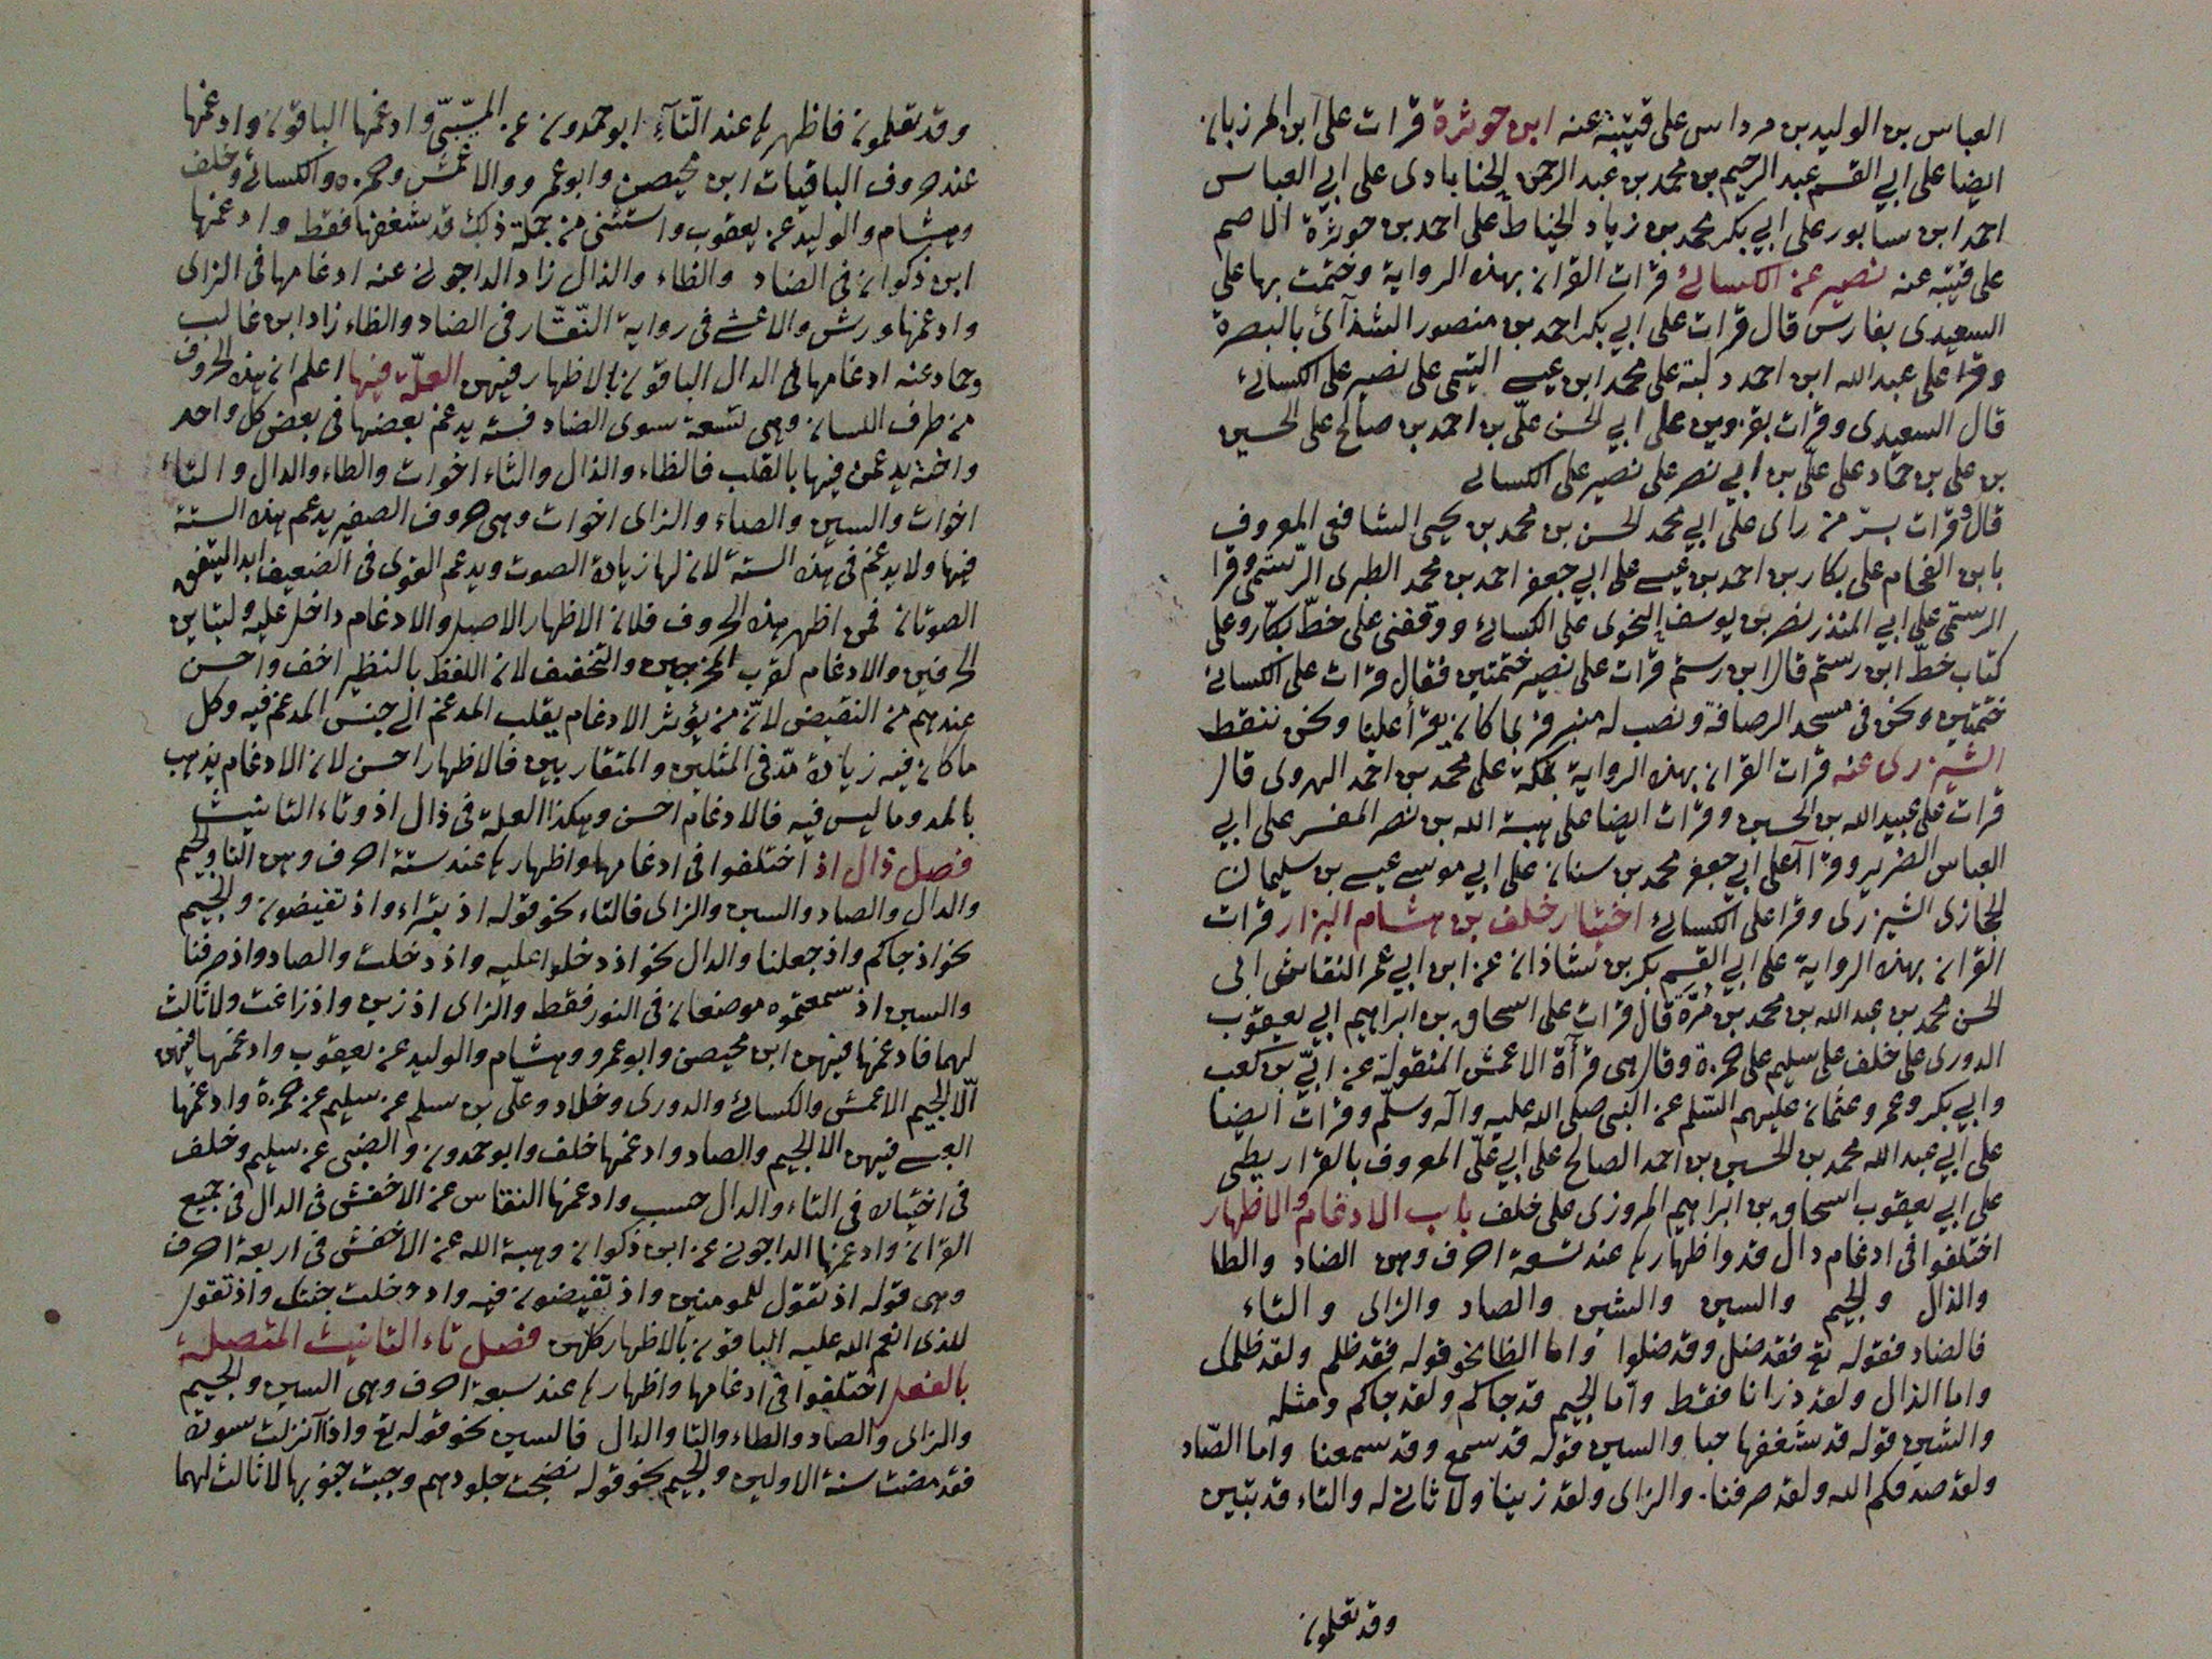 العباس بن الوليد بن مرداس على قتيبة عنه ابن حوثرة قرات على ابن المرزبان
ايضا على ابي القسم عبد الرحيم بن محمد بن عبد الرحمن الحنابادى على ابي العباس
احمد ابن سابور على ابي بكر محمد بن زياد الخياط على احمد بن حوثرة الاصم
على قتيبه عنه نصير عن الكسائ قرات القران بهذه الرواية وختمت بها على
السعيدى بفارس قال قرات على ابي بكر احمد بن منصور الشذآئ بالبصرة
وقرا على عبد الله ابن احمد دلبة على محمد ابن عيسى التيمى على نصير على الكسائ
قال السعيدى وقرات بقزوين على ابي الحسن علىّ بن احمد بن صالح على الحسين
بن على بن حماد على علىّ بن ابي نصر على نصير على الكسائ
قال وقرات بسرّ من راى على ابي محمد الحسن بن محمد بن يحيى الشافعى المعروف
بابن الفحام على بكار بن احمد بن عيسى على ابي جعفر احمد بن محمد الطبرى الرستمى وقرا
الرستمى على ابي المنذر نصر بن يوسف النحوى على الكسائ ووقفنى على خطّ بكّار وعلى
كتاب خطّ ابن رستم قال ابن رستم قرات على نصير ختمتين فقال قرات على الكسائ
ختمتين ونحن فى مسجد الرصافة ونصب له منبر فربما كان يقرأ علينا ونحن ننقط
الشيزرى عنه قرات القران بهذه الرواية بمكة على محمد بن احمد الهروى قال
قرات على عبيد الله بن الحسين وقرات ايضا على هبة الله بن نصر المفسر على ابي
العباس الضرير وقراآ على ابي جعفر محمد بن سنان على ابي موسى عيسى بن سليمان
الحجازى الشيزرى وقرا على الكسائ اختيار خلف بن هشام البزار قرات
القران بهذه الرواية على ابي القسم بكر بن شاذان عن ابن ابي عمر النقاش ابى
الحسن محمد بن عبد الله بن محمد بن مرّة قال قرات على اسحاق بن ابراهيم ابي يعقوب
الدورى على خلف على سليم على حمزة وقال هى قرآة الاعمش المنقولة عن ابيّ بن كعب
وابي بكر وعمر وعثمان عليهم السلم عن النبى صلى الله عليه وآله وسلّم وقرات ايضا
على ابي عبد الله محمد بن الحسين بن احمد الصالح على ابي علىّ المعروف بالقراريطى
على ابي يعقوب اسحاق بن ابراهيم المروزى على خلف باب الادغام والاظهار
اختلفوا فى ادغام دال قد واظهارها عند تسعة احرف وهن الضاد والظا
والذال والجيم والسين والشين والصاد والزاى والتاء
فالضاد فقوله تع فقد ضل وقد ضلوا واما الظا نحو قوله فقد ظلم ولقد ظلمك
واما الذال ولقد ذرانا فقط وامّا الجيم قد جاكم ولقد جاكم ومثله
والشين قوله قد شغفها حبا والسين قوله قد سمع وقد سمعنا واما الصّاد
ولقد صدقكم الله ولقد صرفنا والزاى ولقد زينا ولا ثانى له والتاء قد تبين
وقد تعلمون
وقد تعلمون فاظهرها عند التّآء ابو حمدون عن المسيّبىّ وادغمها الباقون وادغمها
عند حروف الباقيات ابن محيصن وابو عمرو والاعمش وحمزه والكسائ وخلف
وهشام والوليد عن يعقوب واستثنى من جملة ذلك قد شغفها فقط وادغمها
ابن ذكوان فى الضاد والظاء والذال زاد الداجونى عنه ادغامها فى الزاى
وادغمها ورش والاعشى فى رواية النّقّار فى الضاد والظاء زاد ابن غالب
وحماد عنه ادغامها فى الدال الباقون بالاظهار فيهن العلّة فيها اعلم ان هذه الحروف
من طرف اللسان وهى تسعة سوى الضاد فستة يدغم بعضها فى بعض كل واحد
واخته يدغمن فيها بالقلب فالظاء والذال والثاء اخوات والطاء والدال والتاء
اخوات والسين والصاد والزاى اخوات وهى حروف الصفير يدغم هذه الستة
فيها ولا يدغم فى هذه الستة لان لها زيادة الصوت ويدغم القوى فى الضعيف ابدا ليتفق
الصوتان فمن اظهر هذه الحروف فلان الاظهار الاصل والادغام داخل عليه ولتباين
الحرفين والادغام لقرب المخرجين والتخفيف لان اللفظ بالنظير اخف واحسن
عندهم من النقيض لانّ من يؤثر الادغام يقلب المدغم الى جنس المدغم فيه وكل
ما كان فيه زيادة مدّ فى المثلين والمتقاربين فالاظهار احسن لان الادغام يذهب
بالمد وما ليس فيه فالادغام احسن وهكذا العلة فى ذال اذ وتاء التانيث
فصل ذال اذ اختلفوا فى ادغامها واظهارها عند ستة احرف وهن التا والجيم
والدال والصاد والسين والزاى فالتاء نحو قوله اذ تبراء واذ تفيضون والجيم
نحو اذ جاكم واذ جعلنا والدال نحو اذ دخلوا عليه واذ دخلت والصاد واذ صرفنا
والسين اذ سمعتموه موضعان فى النور فقط والزاى اذ زين واذ زاغت ولا ثالث
لهما فادغمها فيهن ابن محيصن وابو عمرو وهشام والوليد عن يعقوب وادغمها فيهن
الّا الجيم الاعمش والكسائ والدورى وخلاد وعلىّ بن سلم عن سليم عن حمزة وادغمها
العبسى فيهن الا الجيم والصاد وادغمها خلف وابو حمدون والضبى عن سليم وخلف
فى اختياره فى التاء والدال حسب وادغمها النقاش عن الاخفش فى الدال فى جميع
القران وادغمها الداجونى عن ابن ذكوان وهبة الله عن الاخفش فى اربعة احرف
وهى قوله اذ تقول للمومنين واذ تفيضون فيه واذ دخلت جنتك واذ تقول
للذى انعم الله عليه الباقون بالاظهار كلهن فصل تاء التانيث المتصلة
بالفعل اختلفوا فى ادغامها واظهارها عند سبعة احرف وهى السين والجيم
والزاى والصاد والظاء والثا والدال فالسين نحو قوله تع واذا انزلت سورة
فقد مضت سنة الاولين والجيم نحو قوله نضجت جلودهم وجبت جنوبها لا ثالث لهما